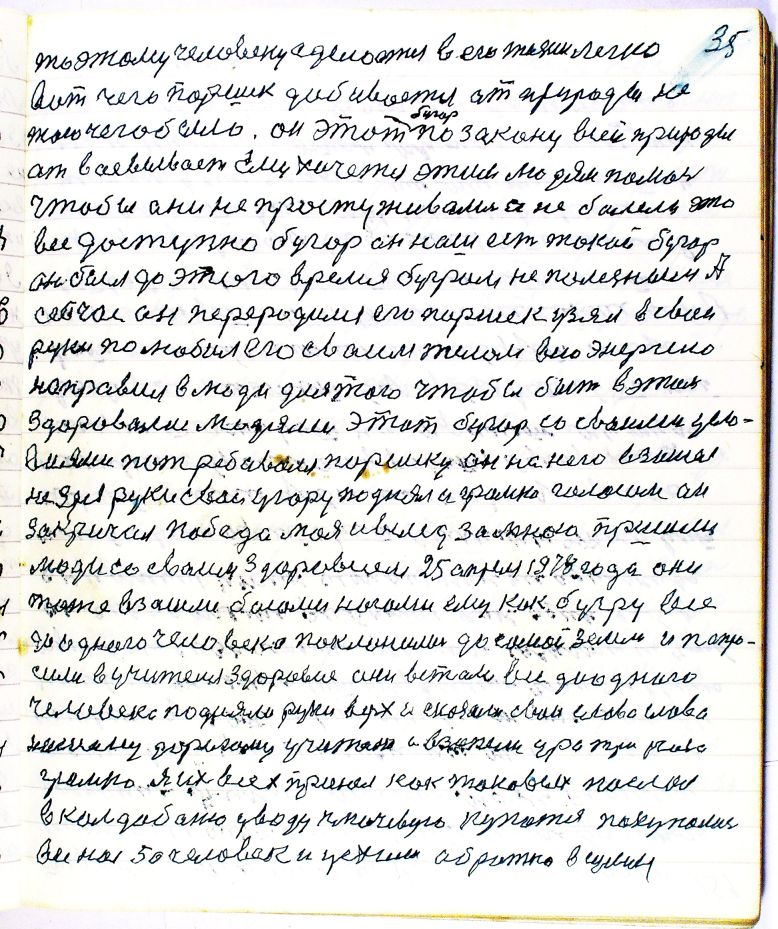 35
поэтому человеку сделается в его жизни легко
вот чего паршек добивается от природы не
того чего было. он этот бугор по закону всей природы
от воевывает Ему хочется этим людям помоч
чтобы они не простуживались и не болели это
все доступно бугор он наш ест такой бугор
он был до этого время бугром не полезным А
сейчас он переродился его паршек узял в свои
руки полюбил его своим телом всю энергию
направил в люди для того чтобы быт в этом
здоровыми людями этот бугор со своими усло-
виями потребовал паршику он на него взошел
руки свои угору поднял и громко голосом он
закричал победа моя и вслед за мною пришли
люди со своим здоровием 25 апреля 1978 года они
тоже взошли босыми ногами ему как бугру все
до одного человека поклонилис до самой земли и попро-
сили в учителя здоровие они встали все до одного
человека подняли руки верх и сказали свои слова слава
нашему дорогому учителю и ура три раза
громко я их всех принял как таковых послал
в колдобаню уводу купатся покупалис
все нас 50 человек и ушли обратно в